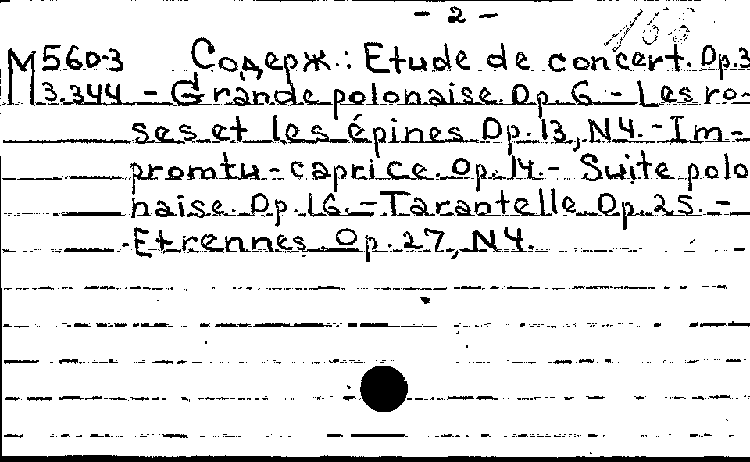 - 2 -
155
M 560-3 Содерж.: Etude de concert. Op.3
3.344 - Grande polonaise. Op. 6. - Les ro-
ses et les épines Op. 13, N4. - Im-
promtu-caprice. Op. 14. - Suite polo
naise. Op. 16. - Tarantelle. Op. 25. -
Etrennes. Op. 27, N4.